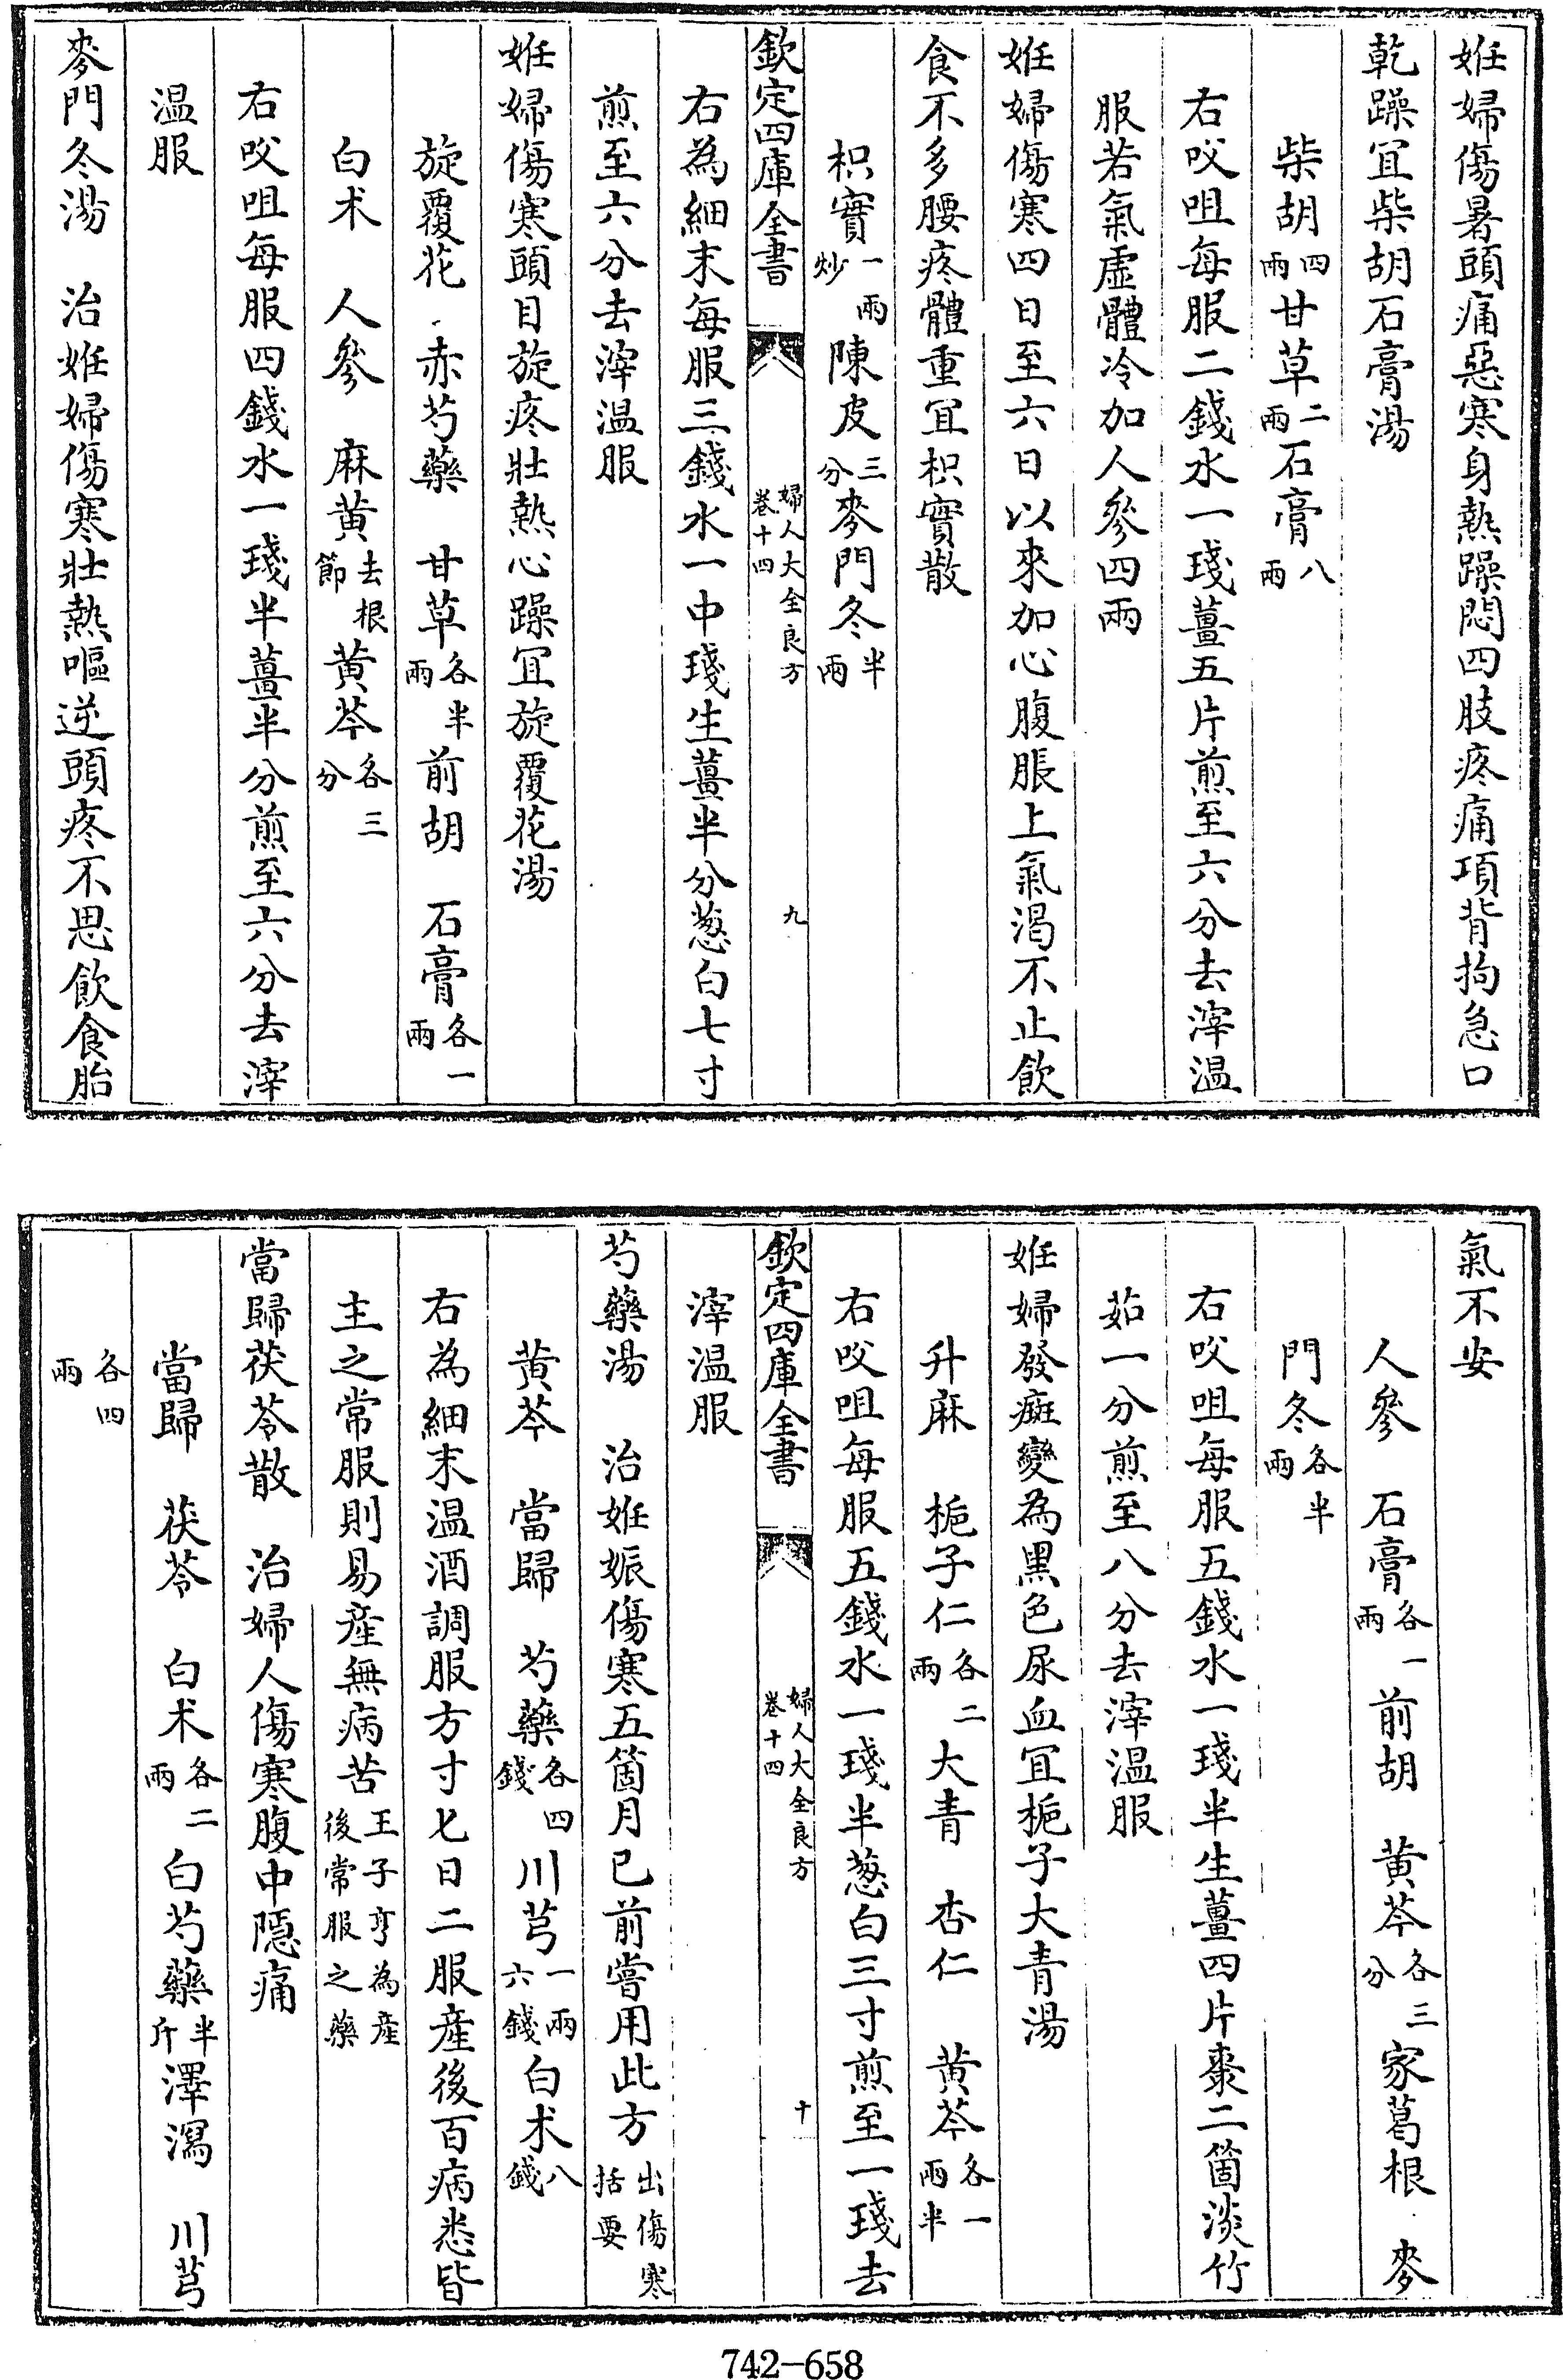 姙婦傷暑頭痛惡寒身熱躁悶四肢疼痛項背拘急口
乾躁宜柴胡石膏湯
柴胡四兩甘草二兩石膏八兩
右㕮咀每服二錢水一琖薑五片煎至六分去滓温
服若氣虛體冷加人參四兩
姙婦傷寒四日至六日以來加心腹脹上氣渴不止飲
食不多腰疼體重宜枳實散
枳實一兩炒陳皮三分麥門冬半兩
欽定四庫全書 婦人大全良方卷十四 九
右為細末每服三錢水一中琖生薑半分葱白七寸
煎至六分去滓温服
姙婦傷寒頭目旋疼壯熱心躁宜旋覆花湯
旋覆花 赤芍藥 甘草各半兩前胡 石膏各一兩
白术 人參 麻黄去根節黄芩各三分
右㕮咀每服四錢水一琖半薑半分煎至六分去滓
温服
麥門冬湯 治姙婦傷寒壯熱嘔逆頭疼不思飲食胎
氣不安
人參 石膏各一兩前胡 黄芩各三分家葛根 麥
門冬各半兩
右㕮咀每服五錢水一琖半生薑四片棗二箇淡竹
茹一分煎至八分去滓温服
姙婦發斑變為黑色尿血宜梔子大青湯
升麻 梔子仁各二兩大青 杏仁 黄芩各一兩半
右㕮咀每服五錢水一琖半葱白三寸煎至一琖去
欽定四庫全書 婦人大全良方卷十四 十
滓温服
芍藥湯 治姙娠傷寒五箇月已前嘗用此方出傷寒括要
黄芩 當歸 芍藥各四錢川芎一兩六錢白术八錢
右為細末温酒調服方寸匕日二服産後百病悉皆
主之常服則易産無病苦王子亨為産後常服之藥
當歸茯苓散 治婦人傷寒腹中隱痛
當歸 茯苓 白术各二兩白芍藥半斤澤瀉 川芎
各四兩
742-658